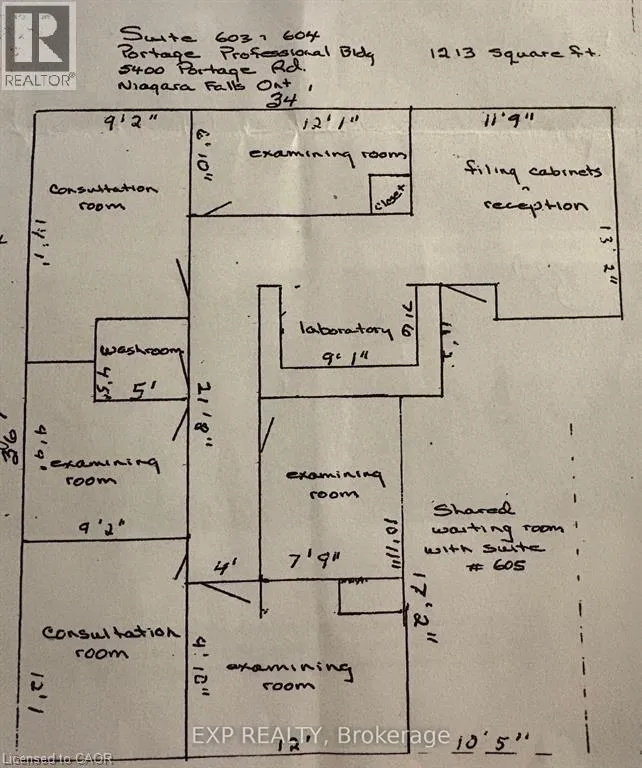 REALTOR®
Suite 603, 604
Portage Professional Bldg
5400 Portage Rd.
Niagara Falls Ont
1213 square ft.
34
9'2"
12'1"
11'9"
6'10"
examining room
closet
filing cabinets
reception
consultation
room
14'1'
13'2"
laboratory
7'6
9'1"
11'2
washroom
4'5"
5'
21'8"
36'
9'9"
examining
room
9'2"
examining
room
10'11"
4'
7'9"
17'2"
Shared
waiting room
with suite
# 605
consultation
room
12'1
examining
room
12'
10'5"
EXP REALTY, Brokerage
Licensed to CAOR